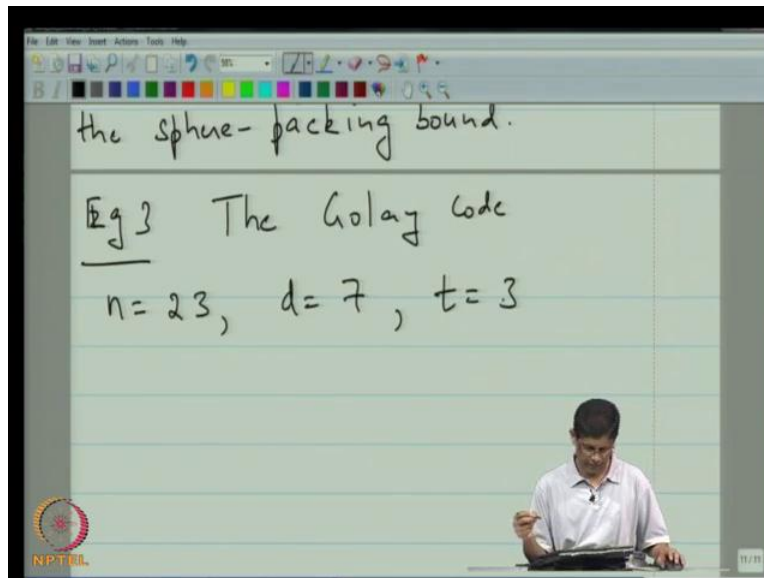 File Edit View Insert Actions Tools Help
the sphere-packing bound.
Eg 3 The Golay Code
n = 23, d = 7, t = 3
NPTEL
11/11